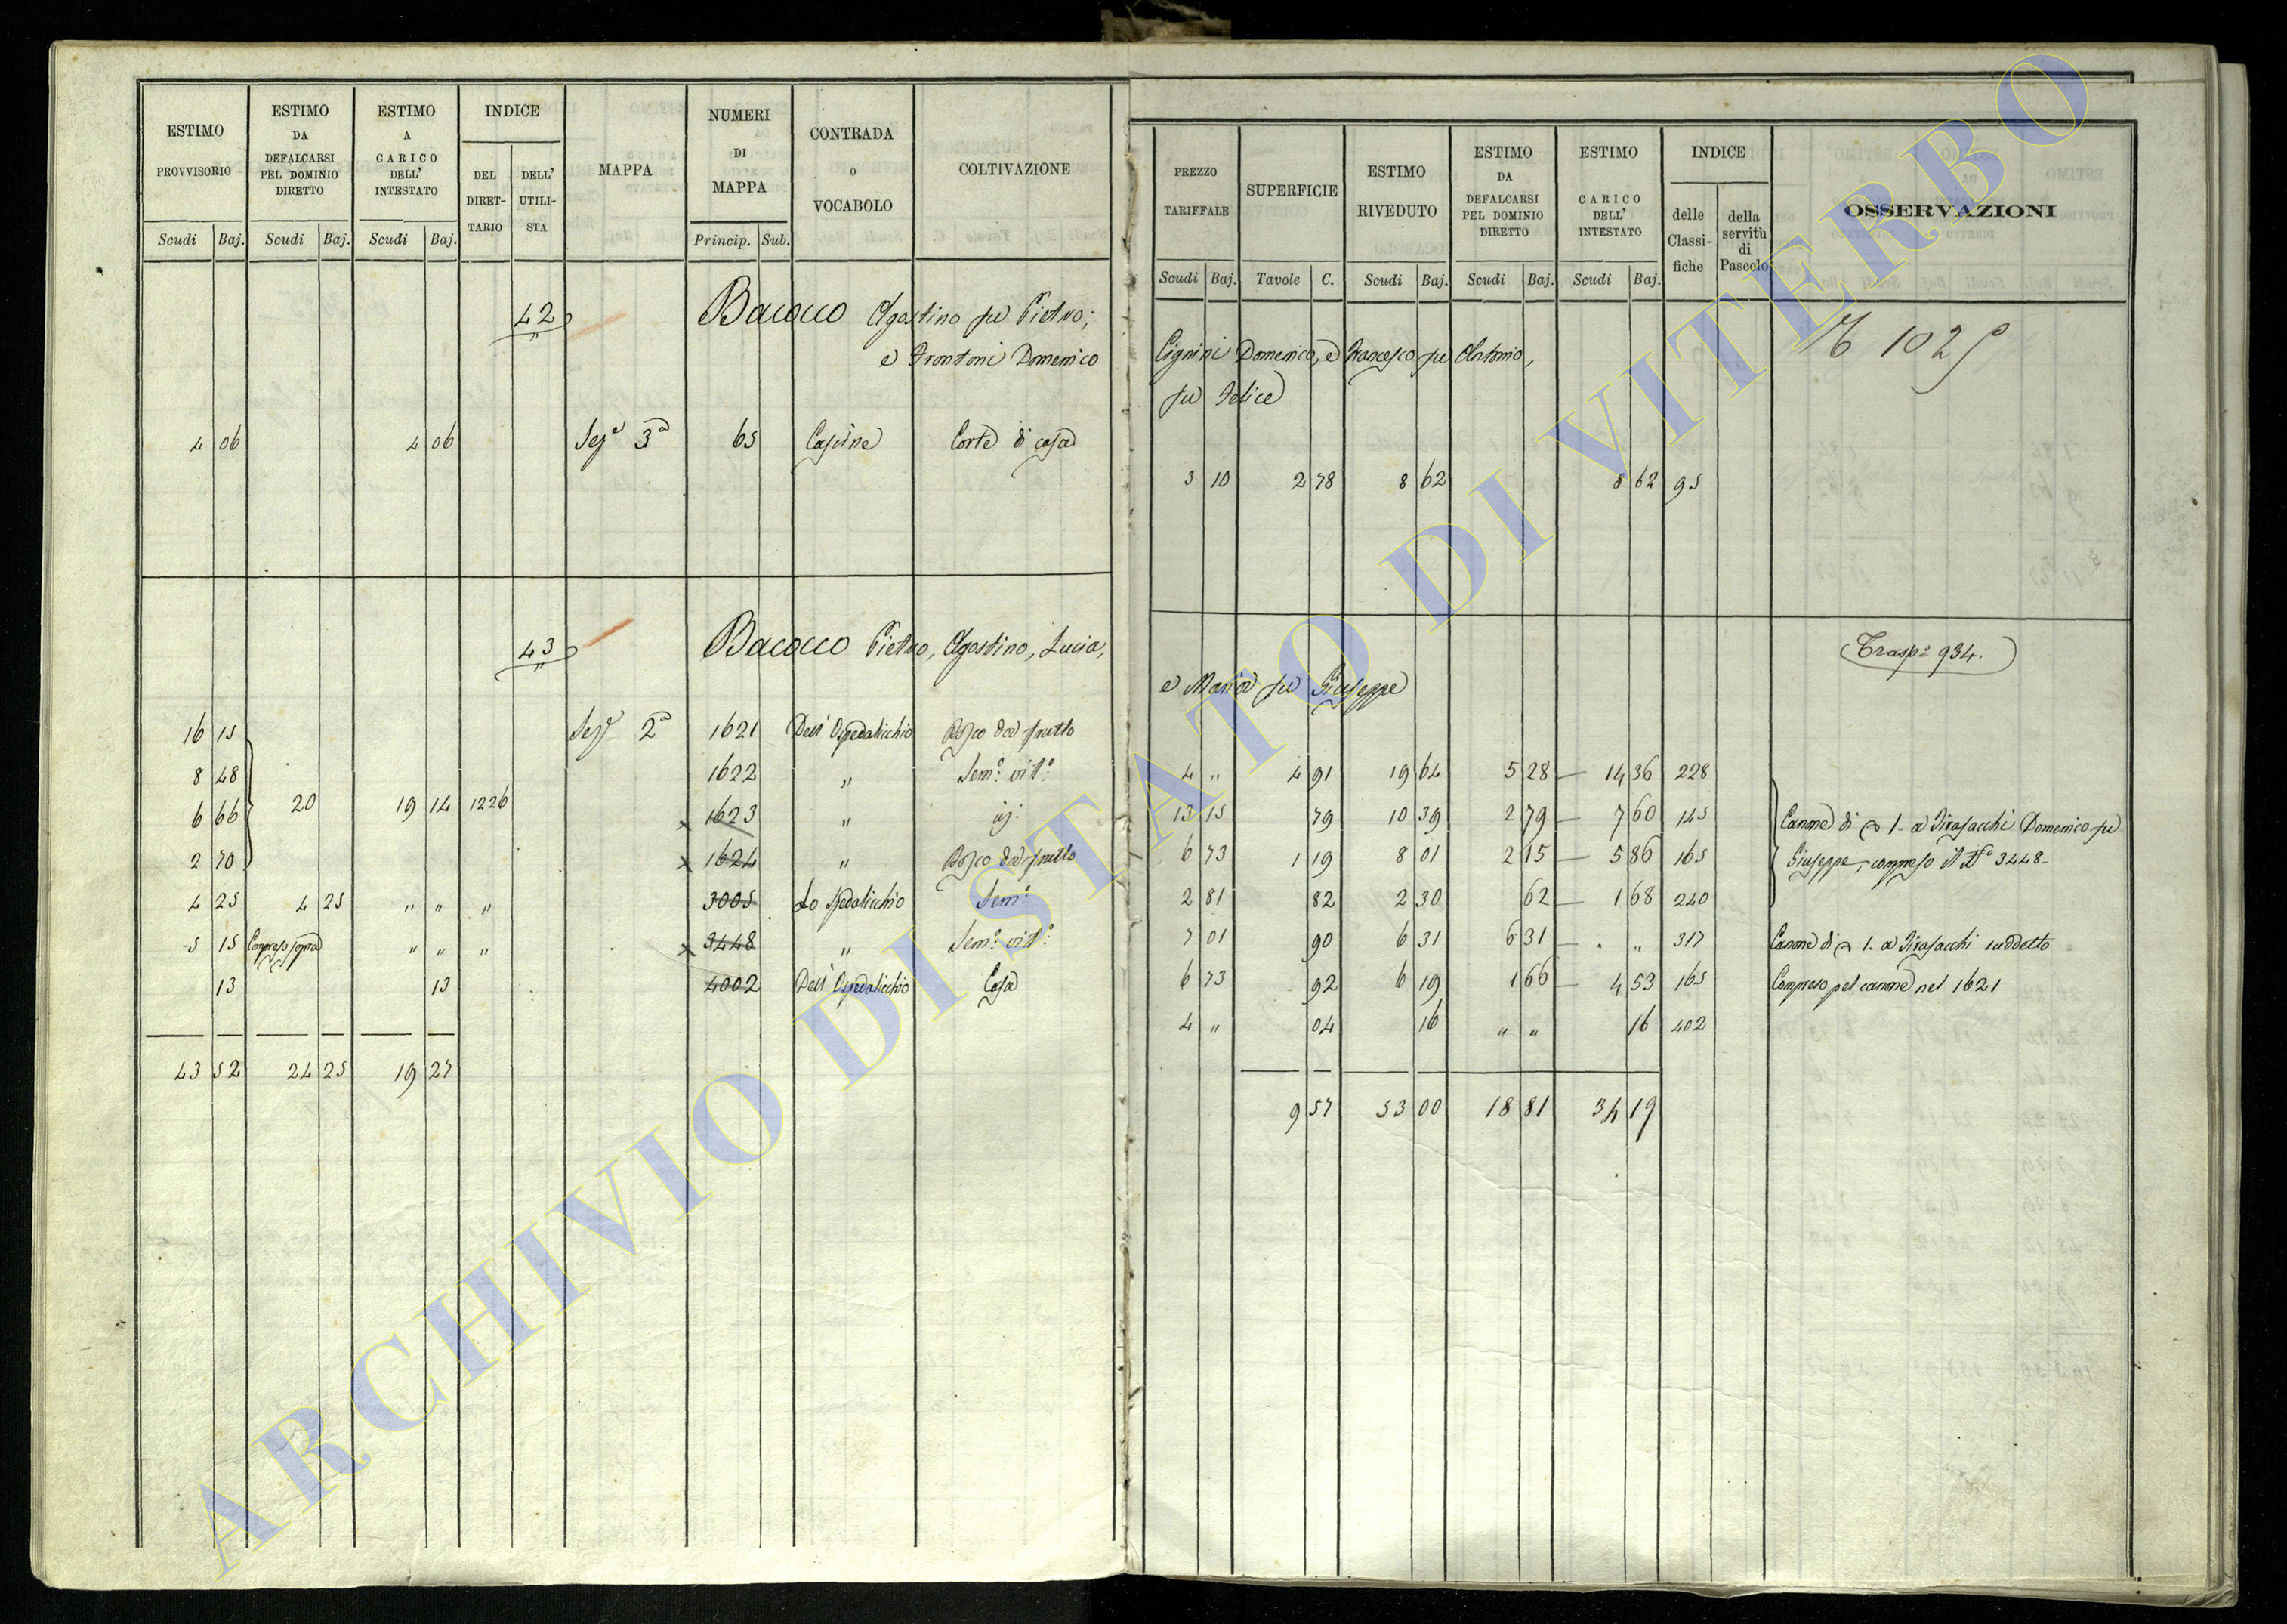 ESTIMO PROVVISORIO
ESTIMO DA DEFALCARSI PEL DOMINIO DIRETTO
ESTIMO A CARICO DELL' INTESTATO
INDICE
DEL DIRET-TARIO
DELL' UTILI-STA
MAPPA
NUMERI DI MAPPA
CONTRADA o VOCABOLO
COLTIVAZIONE
Scudi Baj. Scudi Baj. Scudi Baj. Princip. Sub.
PREZZO TARIFFALE
SUPERFICIE
ESTIMO RIVEDUTO
ESTIMO DA DEFALCARSI PEL DOMINIO DIRETTO
ESTIMO CARICO DELL' INTESTATO
INDICE
delle Classi-fiche
della servitù di Pascolo
OSSERVAZIONI
Scudi Baj. Tavole C. Scudi Baj. Scudi Baj. Scudi Baj.
42 Bacocco Agostino fu Pietro; Cignini Domenico, e Francesco fu Antonio,
e Frontoni Domenico fu Felice
1029
4 06 4 06 Sez.e 3a 65 Cascine Corte di casa
3 10 2 78 8 62 8 62 95
43 Bacocco Pietro, Agostino, Lucia,
e Maria fu Giuseppe
Trasp.o 934.
16 15 Sez.e 2a 1621 Dell' Ospedalicchio Bosco da frutto
8 48 1622 " Sem.o vit.o
6 66 20 19 14 1226 1623 " id.
2 70 1624 " Bosco da frutto
4 25 4 25 " " " 3005 Lo Spedalicchio Sem.o
5 15 Compreso sopra " " " 3448 " Sem.o vit.o
13 13 4002 Dell' Ospedalicchio Casa
43 52 24 25 19 27
4 " 4 91 19 64 5 28 — 14 36 228
13 15 79 10 39 2 79 — 7 60 145 Canone di 1- a Tirasacchi Domenico fu
6 73 1 19 8 01 2 15 — 5 86 165 Giuseppe, compreso il N.o 3448-
2 81 82 2 30 62 — 1 68 240
7 01 90 6 31 6 31 — . " 317 Canone di 1. a Tirasacchi suddetto
6 73 92 6 19 1 66 — 4 53 165 Compreso pel canone nel 1621
4 " 04 16 " " 16 402
9 57 53 00 18 81 34 19
ARCHIVIO DI STATO DI VITERBO